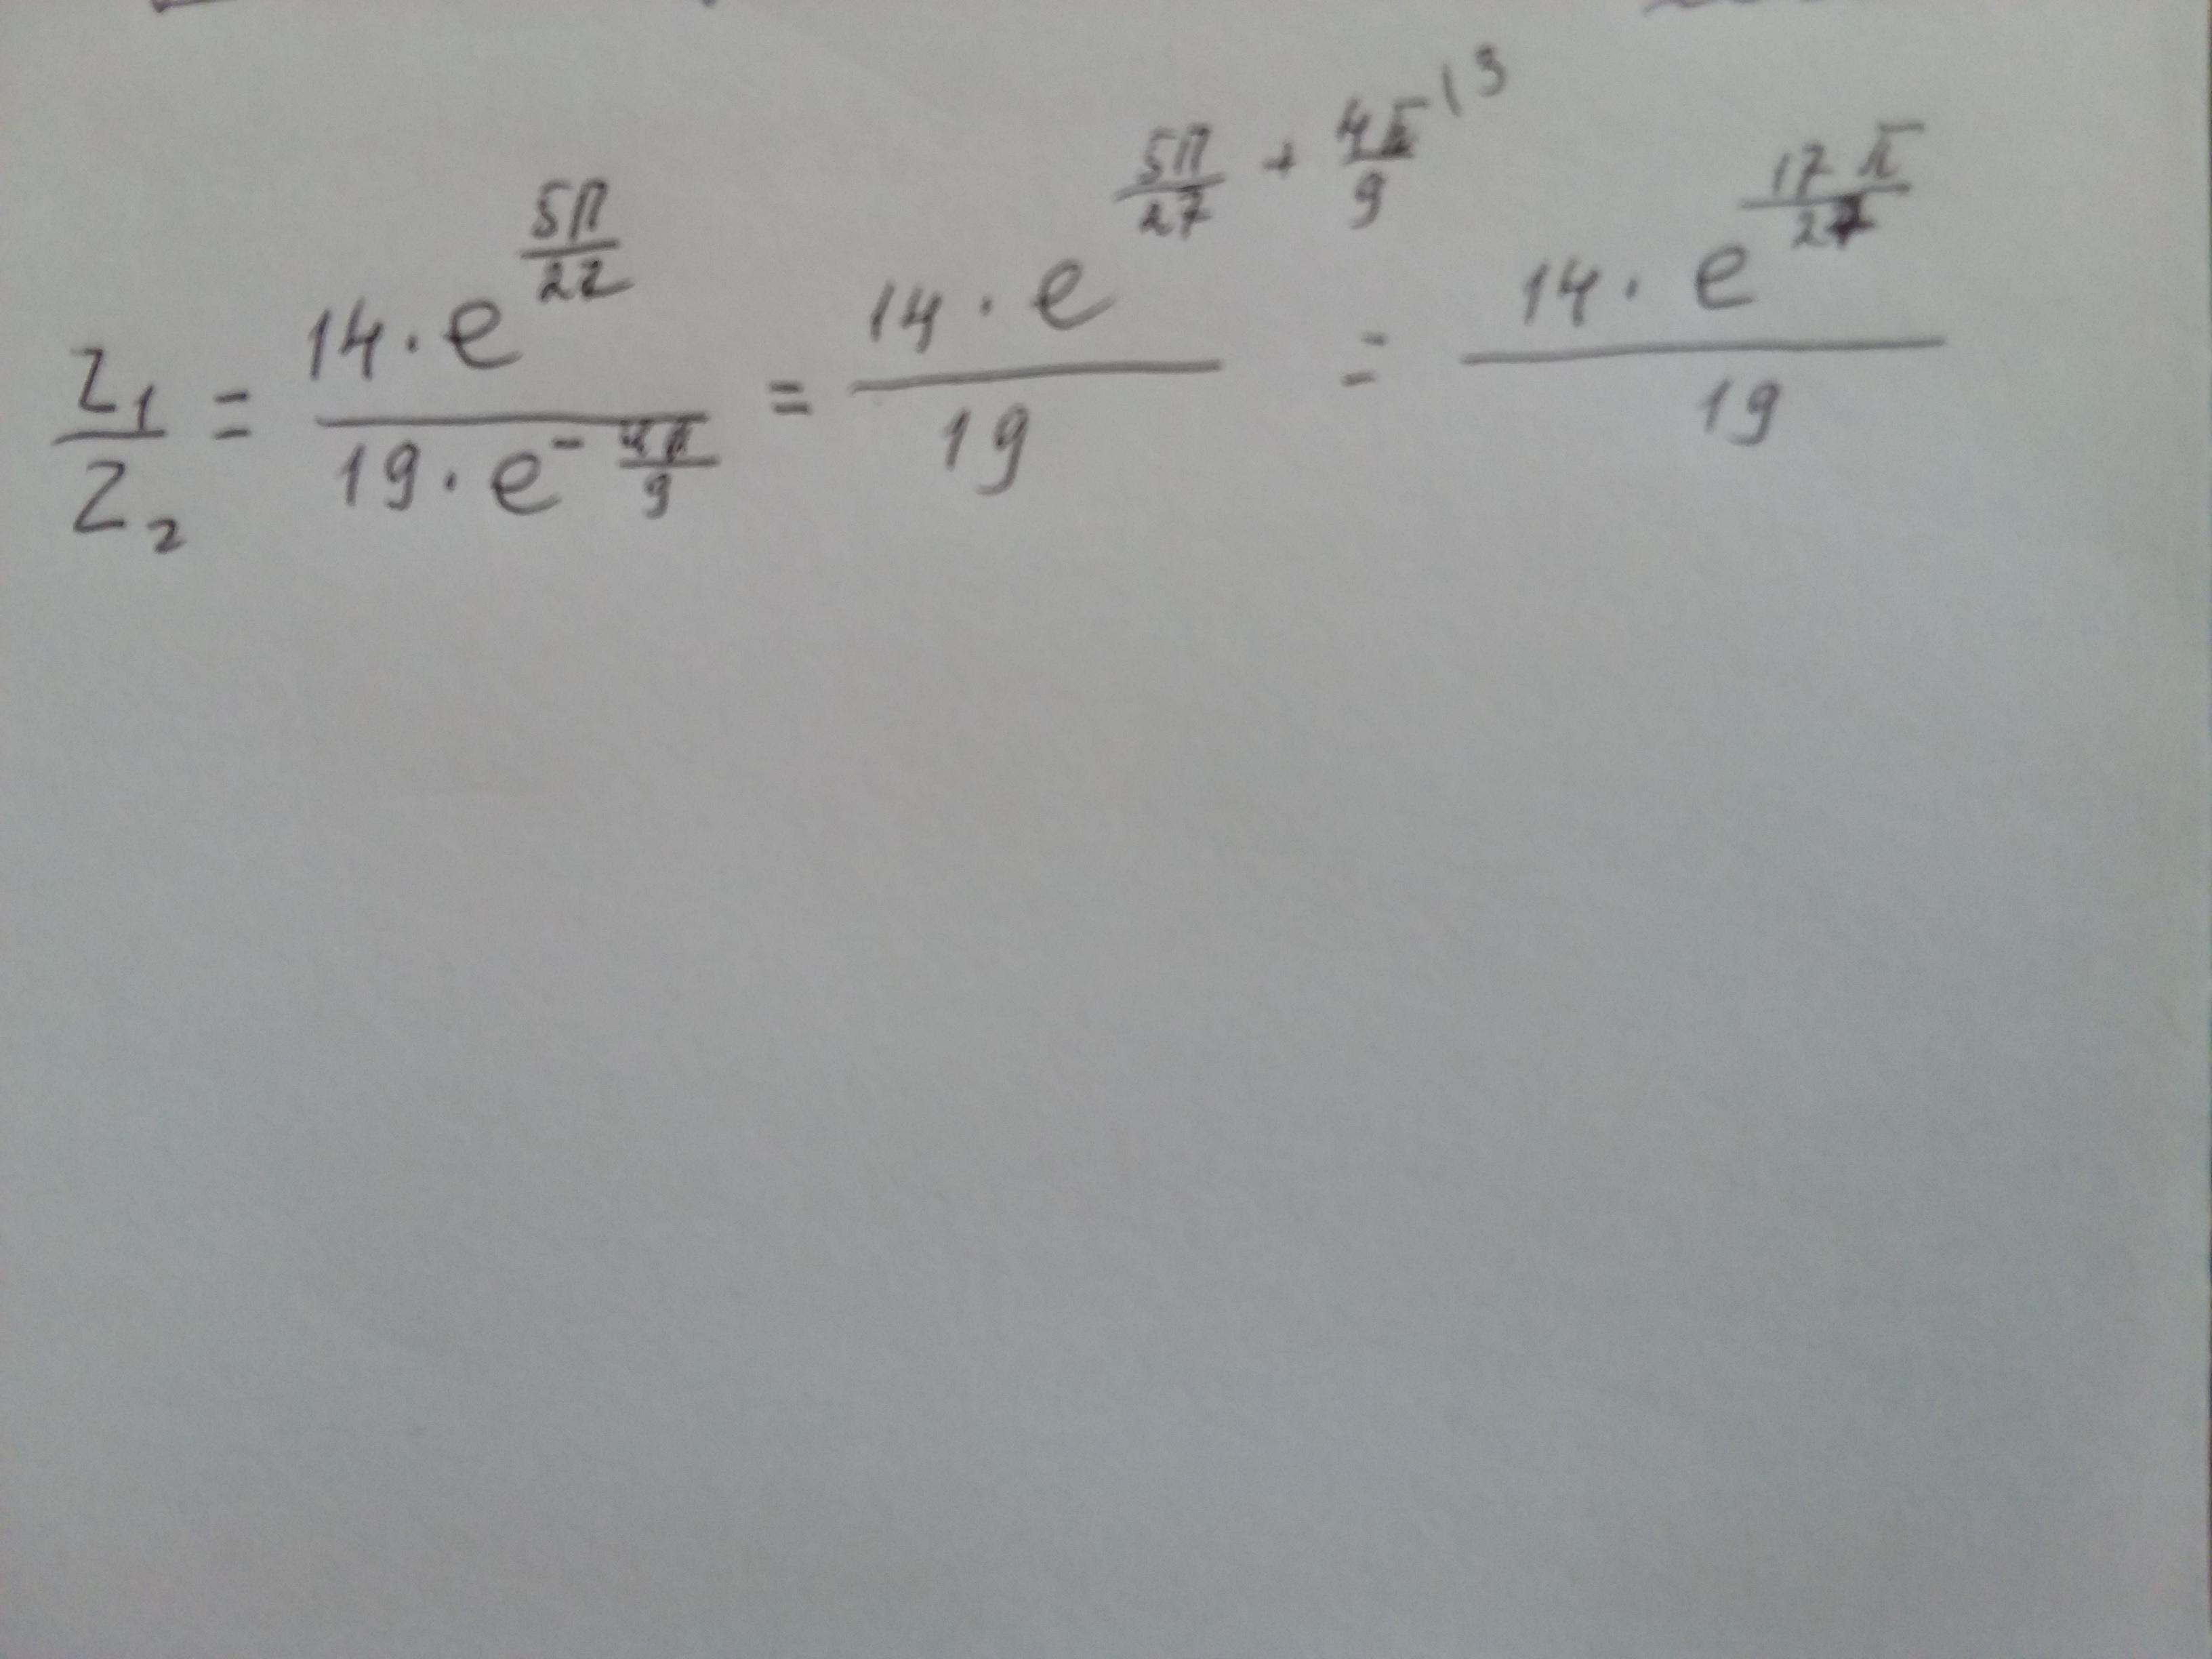 z₁/z₂ = (14 · e^(5π/22)) / (19 · e^(-4π/9)) = (14 · e^(5π/27 + 4π/9 \3)) / 19 = (14 · e^(17π/27)) / 19